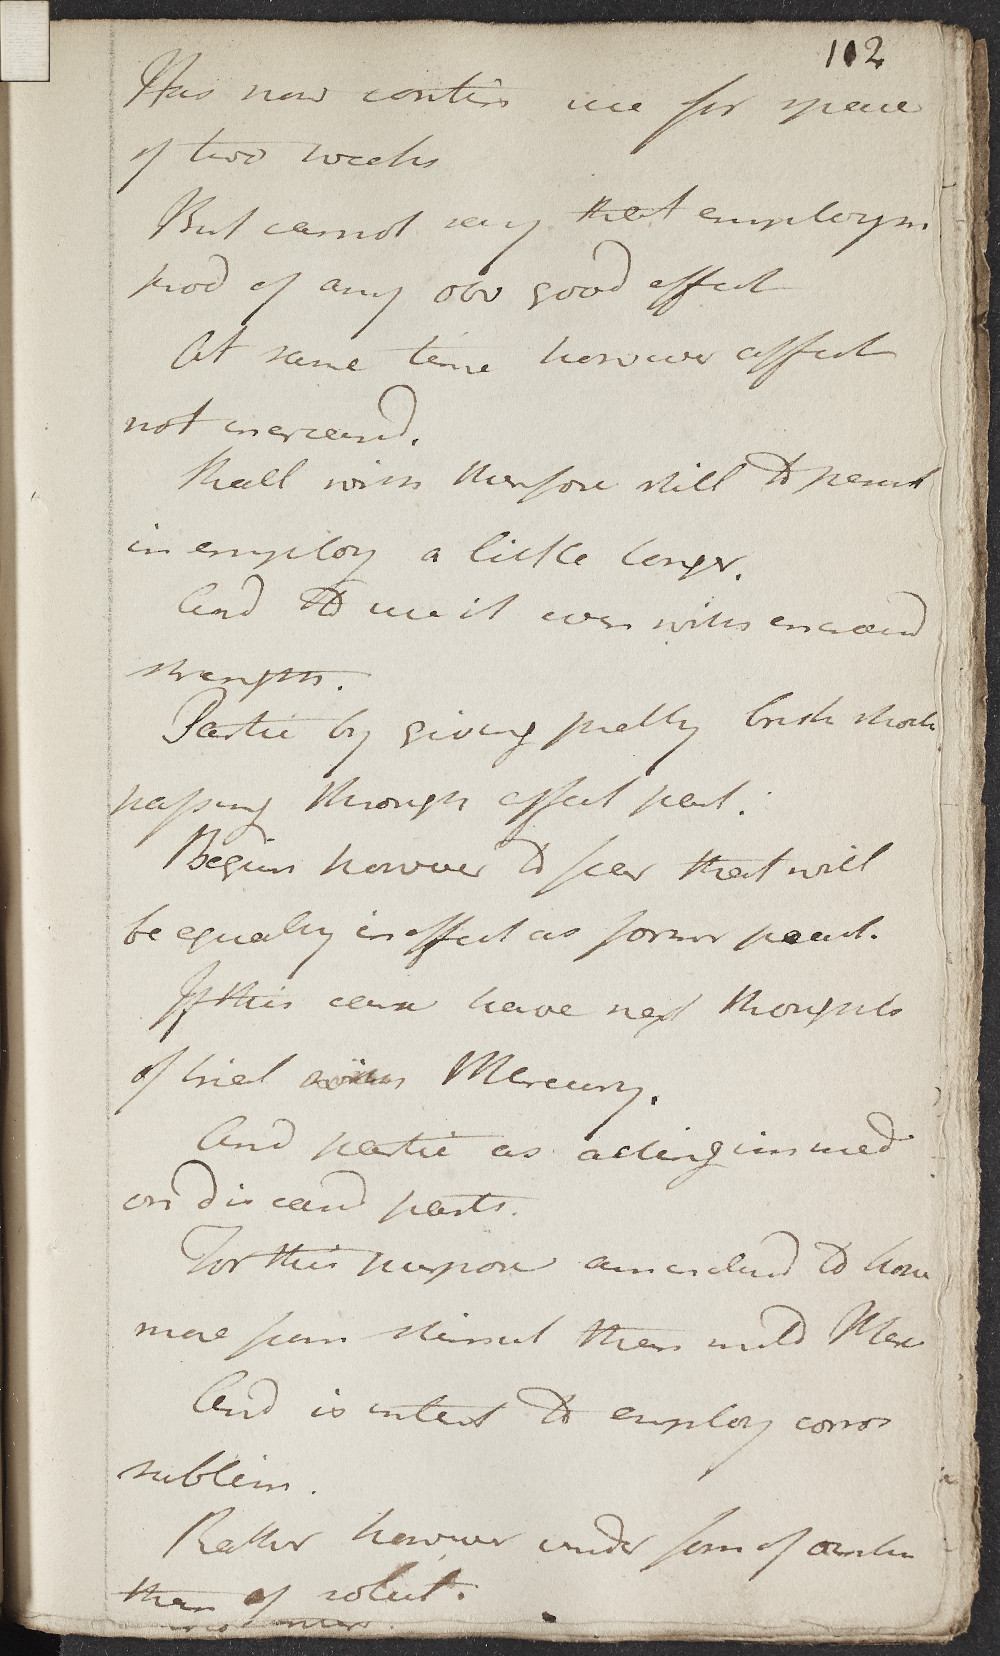 112
Has now contin use for space
of two weeks
But cannot say that employm
prod of any obv good effect
At same time however affect
not increasd.
Shall wish therefore still to persist
in employ a little longer.
And to use it even with increasd
strength.
Partic by giving pretty brisk shock
passing through affect part.
Begin however to fear that will
be equally ineffect as former pract.
If this case have next thoughts
of trial Mercury.
And partic as acting immed
on diseasd parts.
For this purpose am inclind to have
more form stimul than mild Merc
And is intent to employ corros
sublim.
Rather however under form of
than of solut.